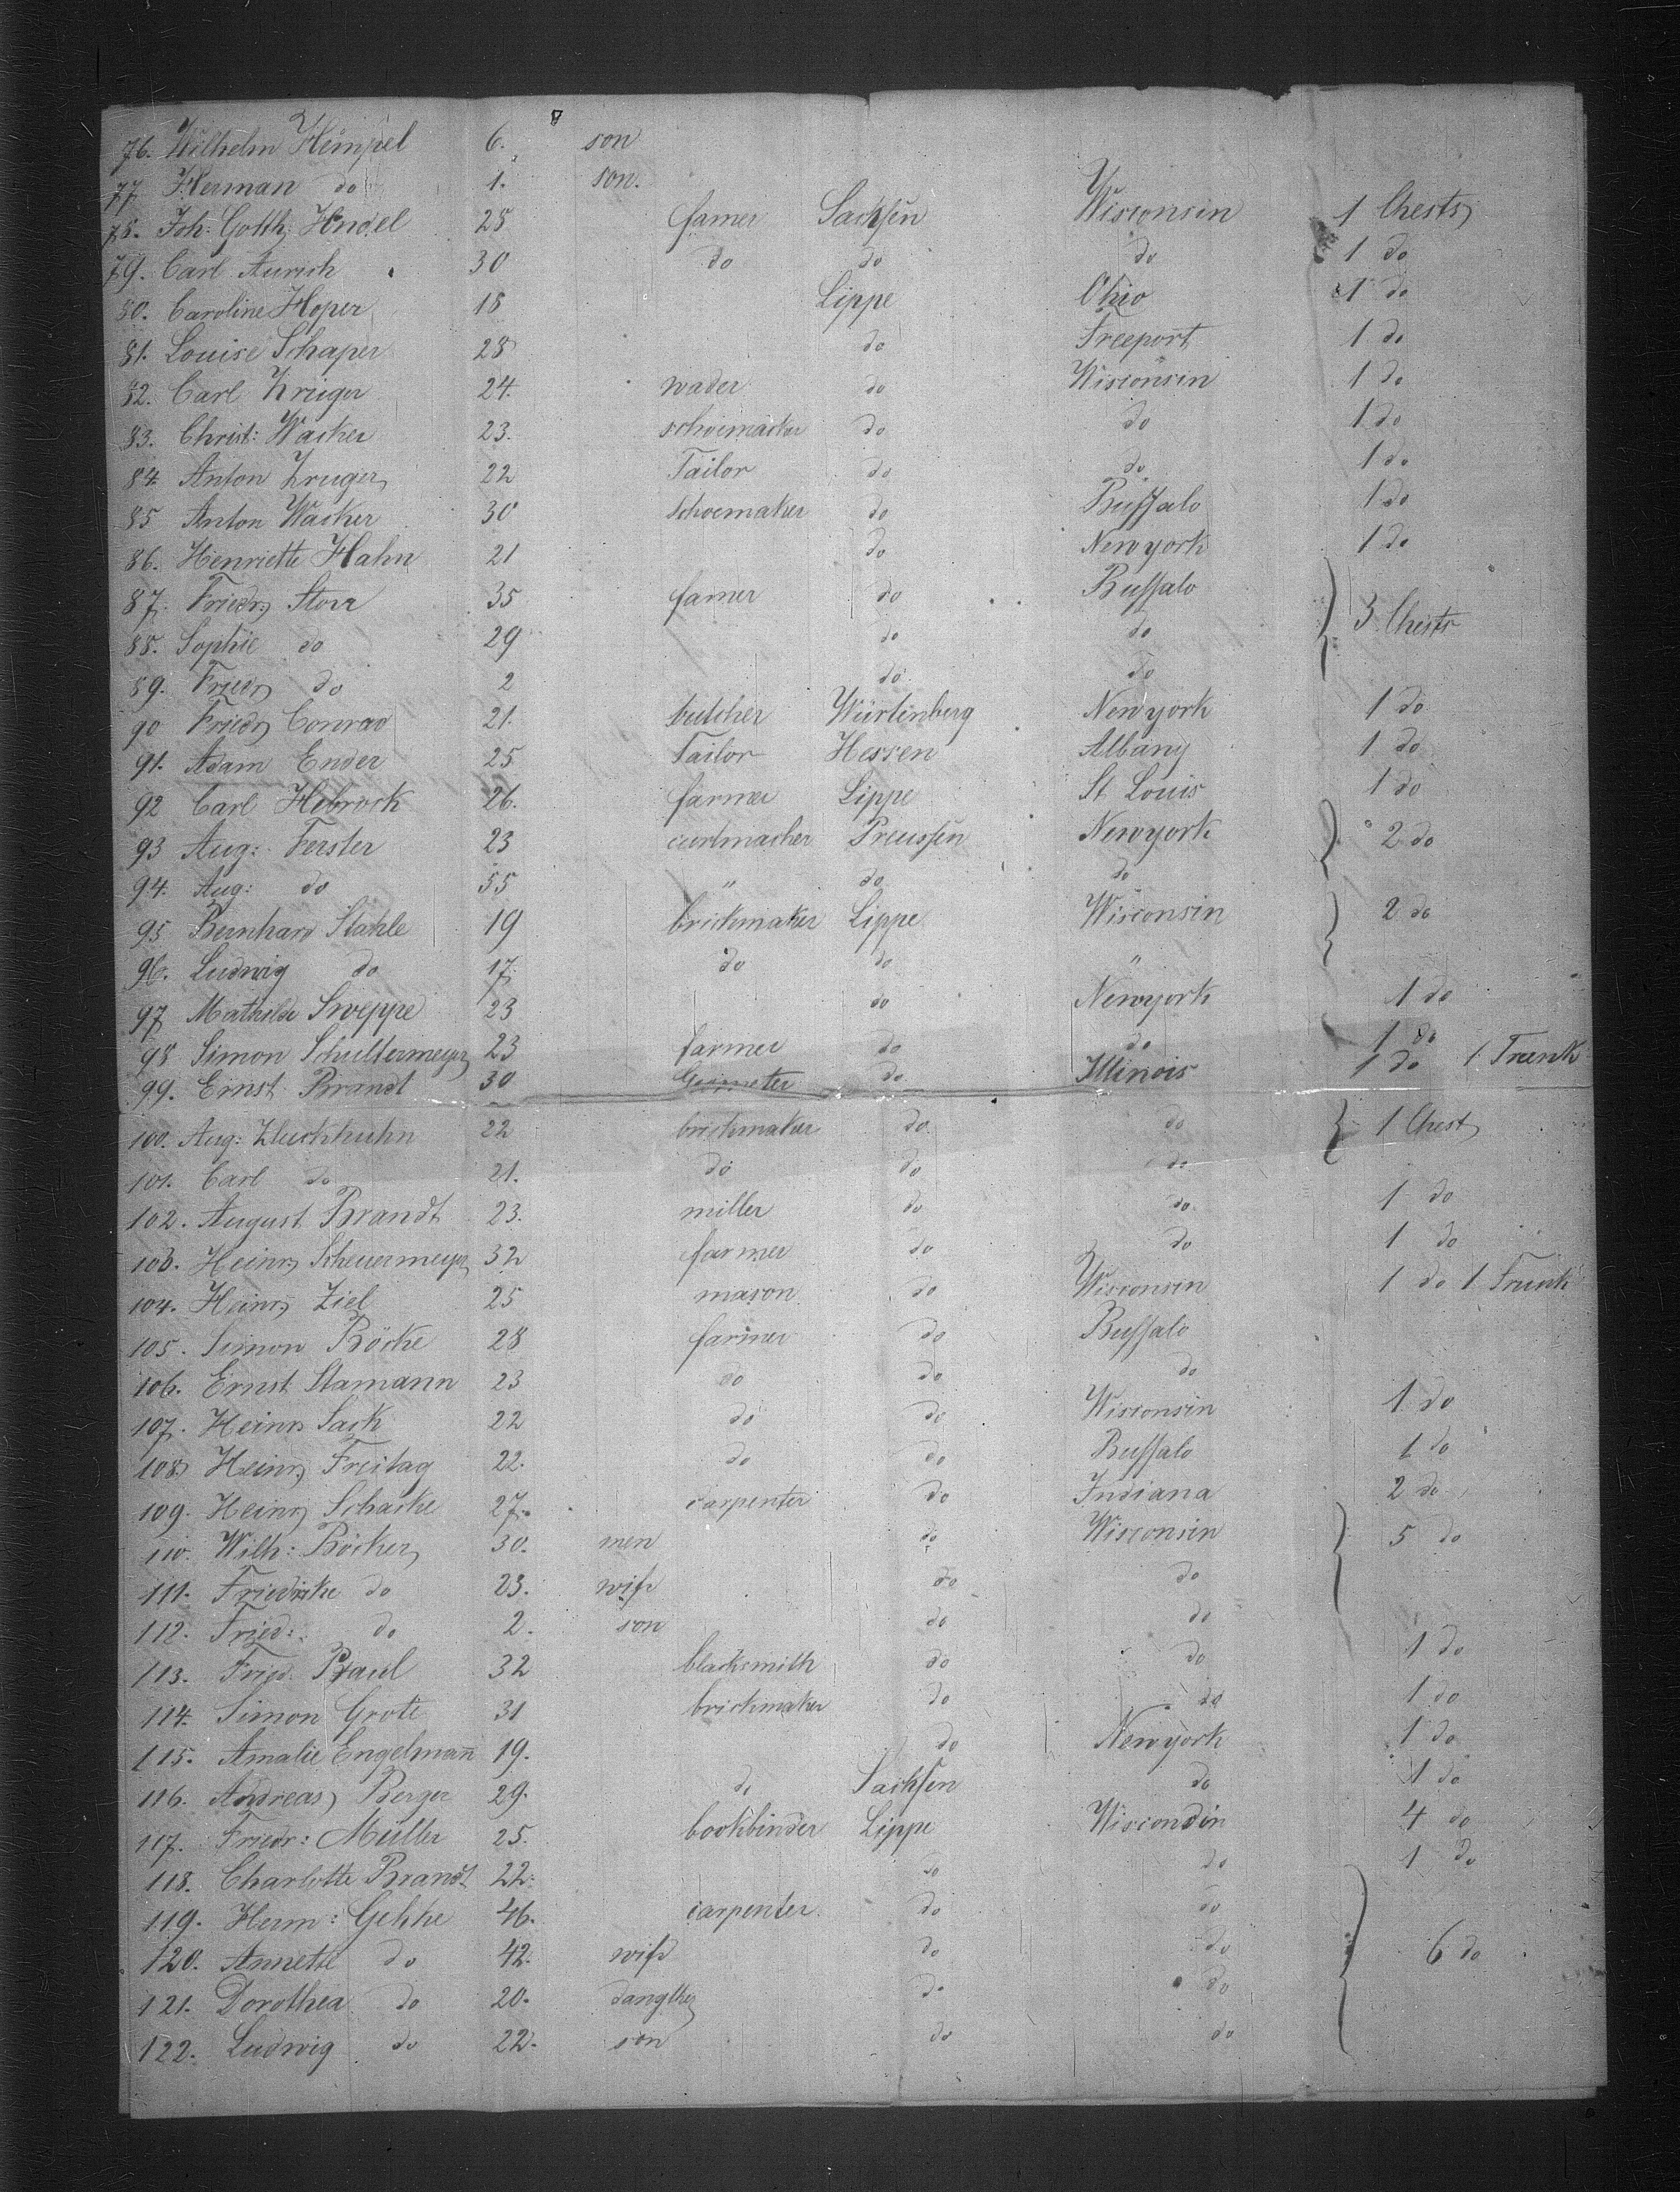 76. Wilhelm Hempel 6. son
77 Herman do 1. son.
78. Joh: Gotth: Hndel 28 famer Sachsen Wisconsin 1 Chests
79. Carl Aurich 30 do do do 1 do
80. Caroline Hoper 18 Lippe Ohio 1 do
81. Louise Schaper 28 do Freeport 1 do
82. Carl Krüger 24. wader do Wisconsin 1 do
83. Christ: Wacker 23. schoemacker do do 1 do
84. Anton Kruger 22 Tailor do do 1 do
85 Anton Wacker 30 schoemaker do Buffalo 1 do
86. Henriette Hahn 21 do Newyork 1 do
87. Friedr Storr 35 famer do Buffalo 3 Chests
88. Sophie do 29 do do
89. Friedr do 2 do do
90 Friedr Conrad 21. butcher Würtenberg Newyork 1 do
91. Adam Ender 25 Tailor Hessen Albany 1 do
92 Carl Hebrock 26. farmer Lippe St Louis 1 do
93 Aug: Ferster 23 Preussen Newyork 2 do
94. Aug: do 55 " do do
95 Bernhard Stahle 19 brickmaker Lippe Wisconsin 2 do
96. Ludwig do 17. do do "
97 Mathilde Sweppe 23 do Newyork 1 do
98 Simon Schultermeyer 23 farmer do do 1 do
99. Ernst Brandt 30 Geometer do Illinois 1 do 1 Trunk
100. Aug: Kluckhuhn 22 brickmaker do do 1 Chest
101. Carl do 21. do do do
102. August Brandt 23. miller do do 1 do
103. Heinr Scheuermeyer 32 farmer do do 1 do
104. Heinr Ziel 25 mason do Wisconsin 1 do 1 Trunk
105. Simon Böcke 28 farmer do Buffalo
106. Ernst Stamann 23 do do do
107. Heinr Sack 22 do do Wisconsin 1 do
108 Heinr Freitag 22. do do Buffalo 1 do
109. Heinr Schacke 27. carpenter do Indiana 2 do
110. Wilh: Böcker 30. men do Wisconsin 5 do
111. Friedrike do 23. wife do do
112. Fried: do 2. son do do
113. Fried. Paul 32 blacksmith do do 1 do
114. Simon Grote 31 brickmaker do do 1 do
115. Amalie Engelmañ 19. do Newyork 1 do
116. Andreas Berger 29. do Sachsen do 1 do
117. Friedr: Müller 25. bookbinder Lippe Wisconsin 4 do
118. Charlotte Brandt 22. do do 1 do
119. Herm: Gehke 46. carpenter do do
120. Annette do 42. wife do do 6 do
121. Dorothea do 20. daugther do do
122. Ludwig do 22. son do do